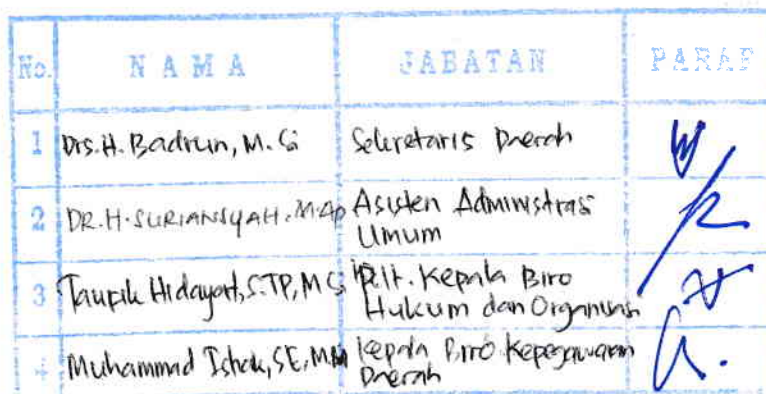 No. N A M A JABATAN PARAF
1 Drs. H. Badrun, M. Si Sekretaris Daerah
2 DR. H. SURIANSYAH. M.AP Asisten Administrasi
Umum
3 Taupik Hidayat, S.TP, M Si Plt. Kepala Biro
Hukum dan Organisasi
4 Muhammad Ishak, SE, MM Kepala Biro Kepegawaian
Daerah